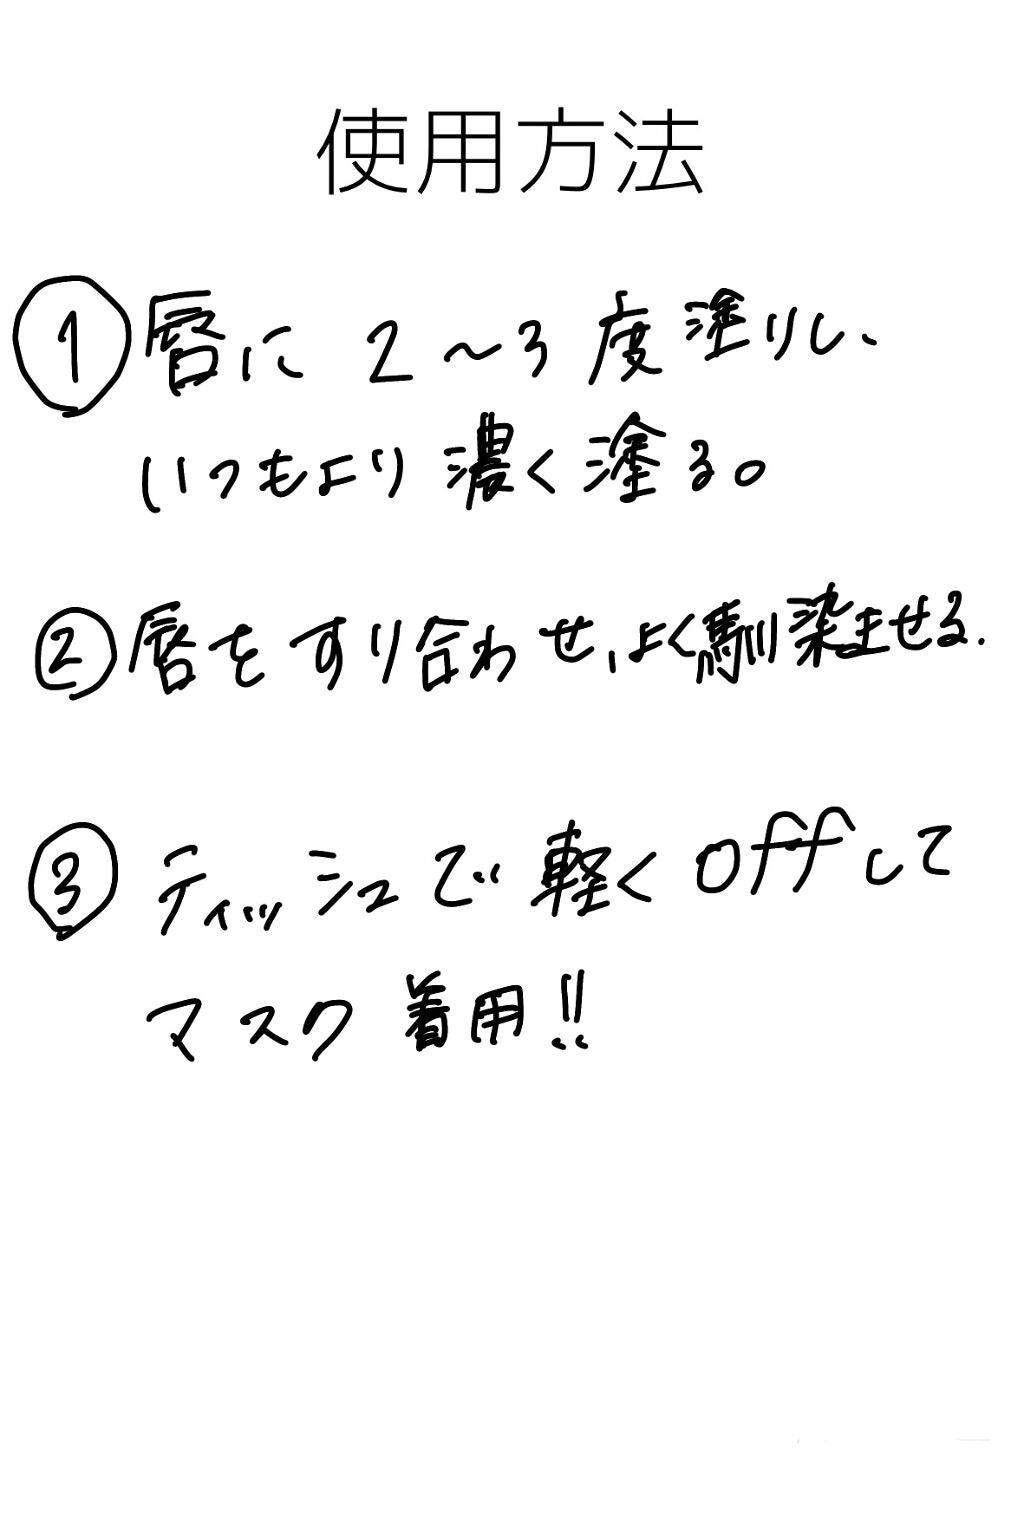 使用方法
① 唇に2〜3度塗りし、
いつもより濃く塗る。
② 唇をすり合わせ、よく馴染ませる.
③ ティッシュで軽くoffして
マスク着用!!